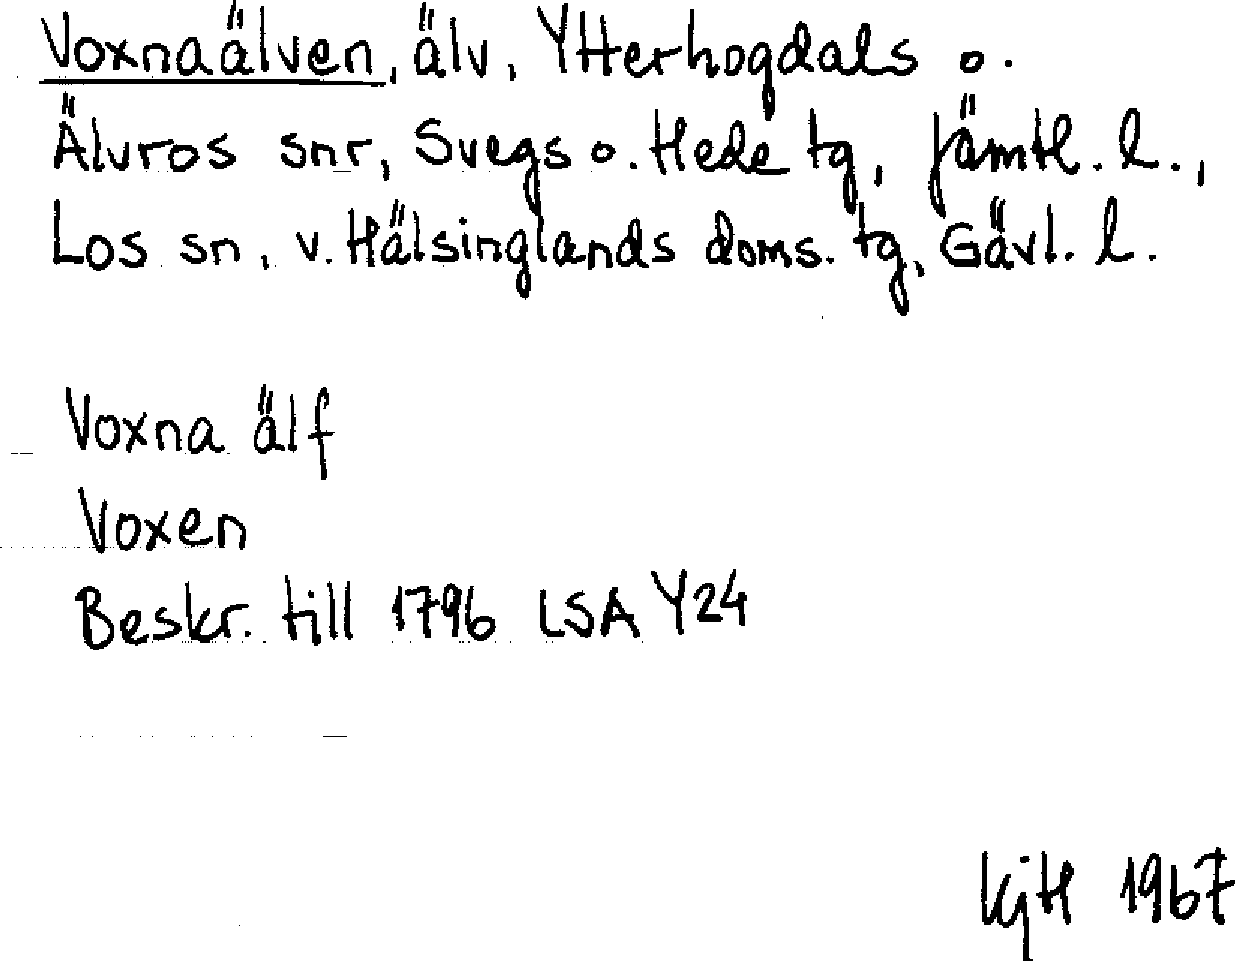 Voxnaälven, älv, Ytterhogdals o.
Älvros snr, Svegs o. Hede tg, Jämtl. l.,
Los sn, v. Hälsinglands doms. tg, Gävl. l.
Voxna älf
Voxen
Beskr. till 1796 LSA Y24
KjH 1967